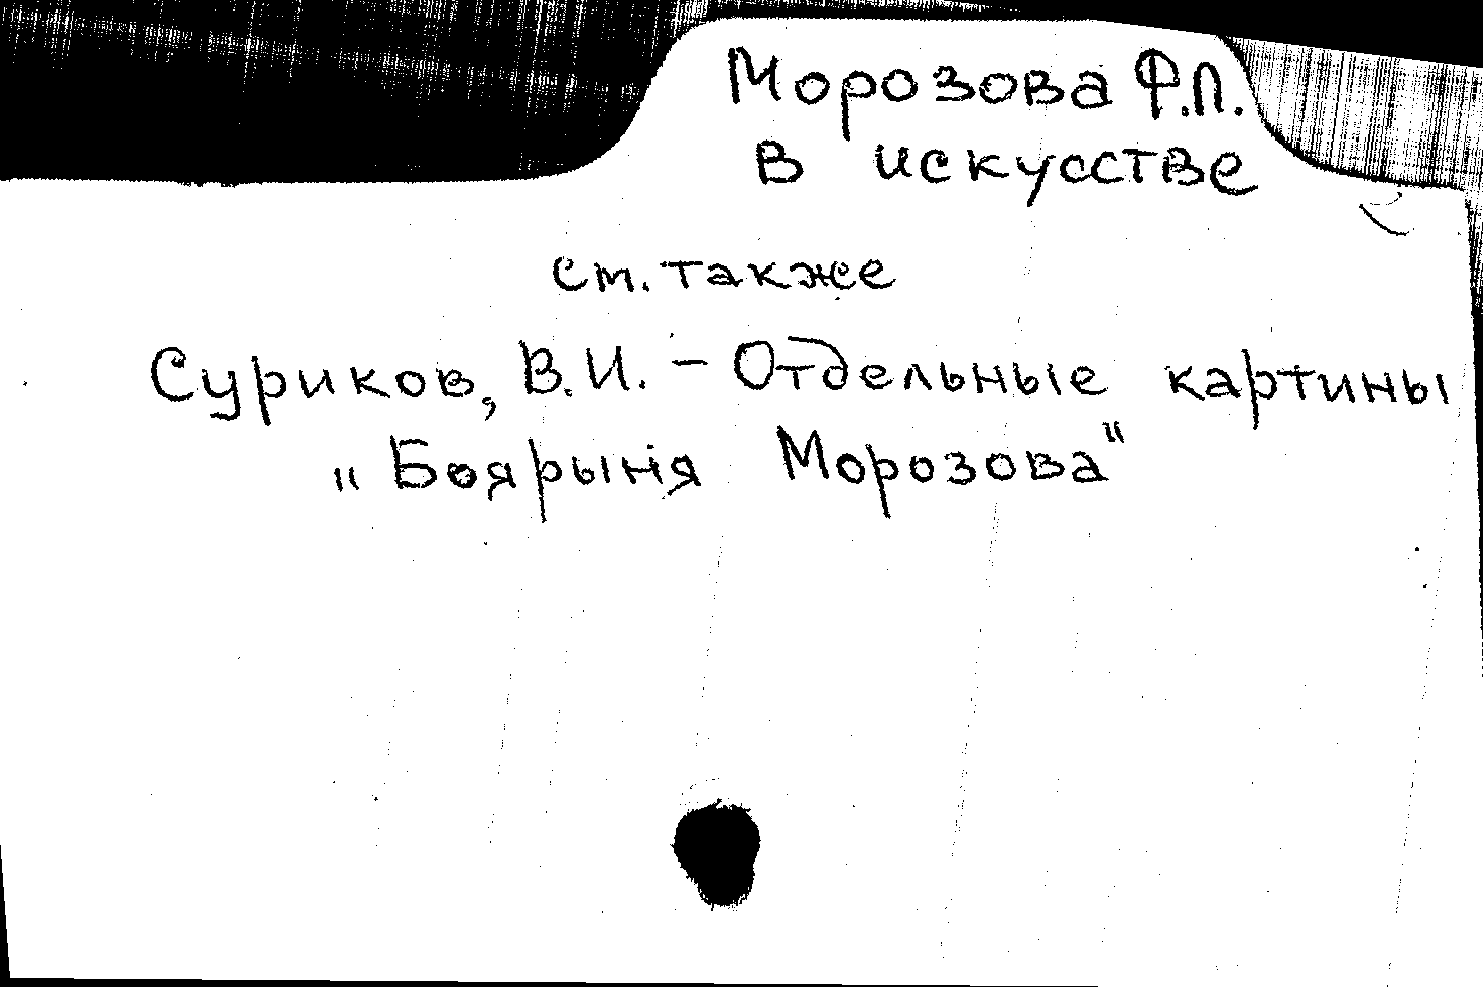 Морозова Ф.П.
в искусстве
см. также
Суриков, В.И. – Отдельные картины
"Боярыня Морозова"